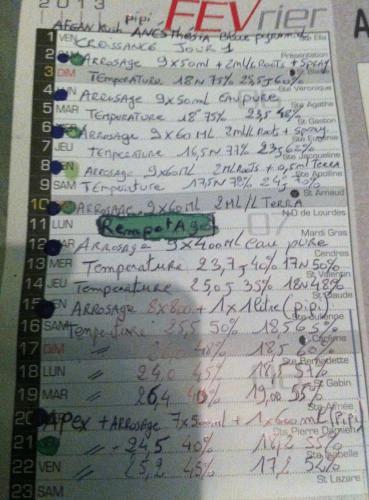 2013 FEVrier
pipi
AFGAN Kush ANESTHesia Bleue pygmy
1 VEN CROISSANCE JOUR 1 Ste Ella
2 ARROSAGE 9x50ml + 2ml/L Roots + Spray Présentation
3 DIM Température 18N 75% 25,5J 60% St Blaise
4 LUN ARROSAGE 9x50ml eau pure Ste Véronique
5 MAR Température 18° 75% 23,5 58% Ste Agathe
6 ARROSAGE 9x60ML 2ml/L Roots + Spray St Gaston
7 JEU Température 16,5N 77% 23J 62% Ste Eugénie
8 VEN ARROSAGE 9x60ML 2ML Roots + 0,5ml TERRA Ste Jacqueline
9 SAM Température 17,5N 78% 24J Ste Apolline
10 ARROSAGE 9x60ML 2ML/L TERRA St Arnaud
11 LUN Rempotage N-D de Lourdes
07
12 MAR ARROSAGE 9x400ml eau pure Mardi Gras
13 MER Température 23,7J 40% 17N 50% Cendres
14 JEU Température 25,0J 35% 18N 48% St Valentin
15 VEN ARROSAGE 8x800 + 1x1litre (pipi) St Claude
16 SAM Température 25,5 50% 18,5 65% Ste Julienne
17 DIM " 18,5 60% Carême
18 LUN " 24,0 45% 18,5 51% Ste Bernadette
19 MAR " 26,4 40% 19,00 55% St Gabin
20 Apex + ARROSAGE 7x500ml + 1x600ml (Pipi) Ste Aimée
21 " 24,5 40% 18,2 55% St Pierre Damien
22 VEN " 25,2 45% 17,2 52% Ste Isabelle
23 SAM St Lazare